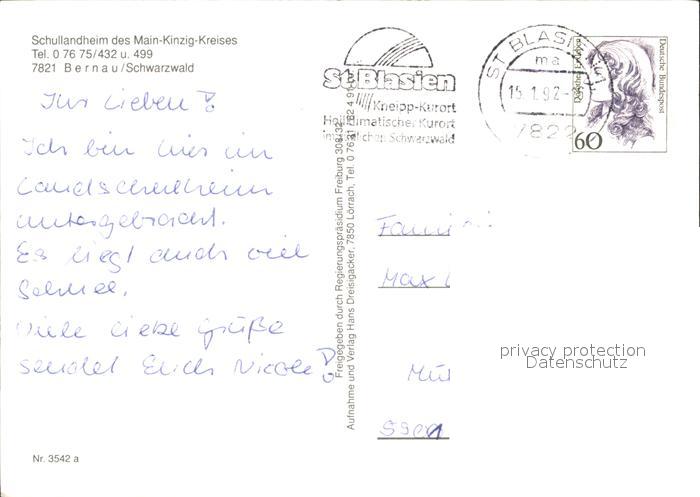 Schullandheim des Main-Kinzig-Kreises
Tel. 0 76 75/432 u. 499
7821 Bernau/Schwarzwald
Ihr Lieben!
Ich bin hier im
Landschulheim
untergebracht.
Es liegt auch viel
Schnee.
Viele liebe Grüße
sendet Euch Nicole
Nr. 3542 a
Freigegeben durch Regierungspräsidium Freiburg
Aufnahme und Verlag Hans Dreisigacker, 7850 Lörrach, Tel. 0 76
St. Blasien
Kneipp-Kurort
Heilklimatischer Kurort
Schwarzwald
ST BLASIEN
ma
15.1.92
7822
Deutsche Bundespost
60
Fami
Max
Mü
privacy protection
Datenschutz